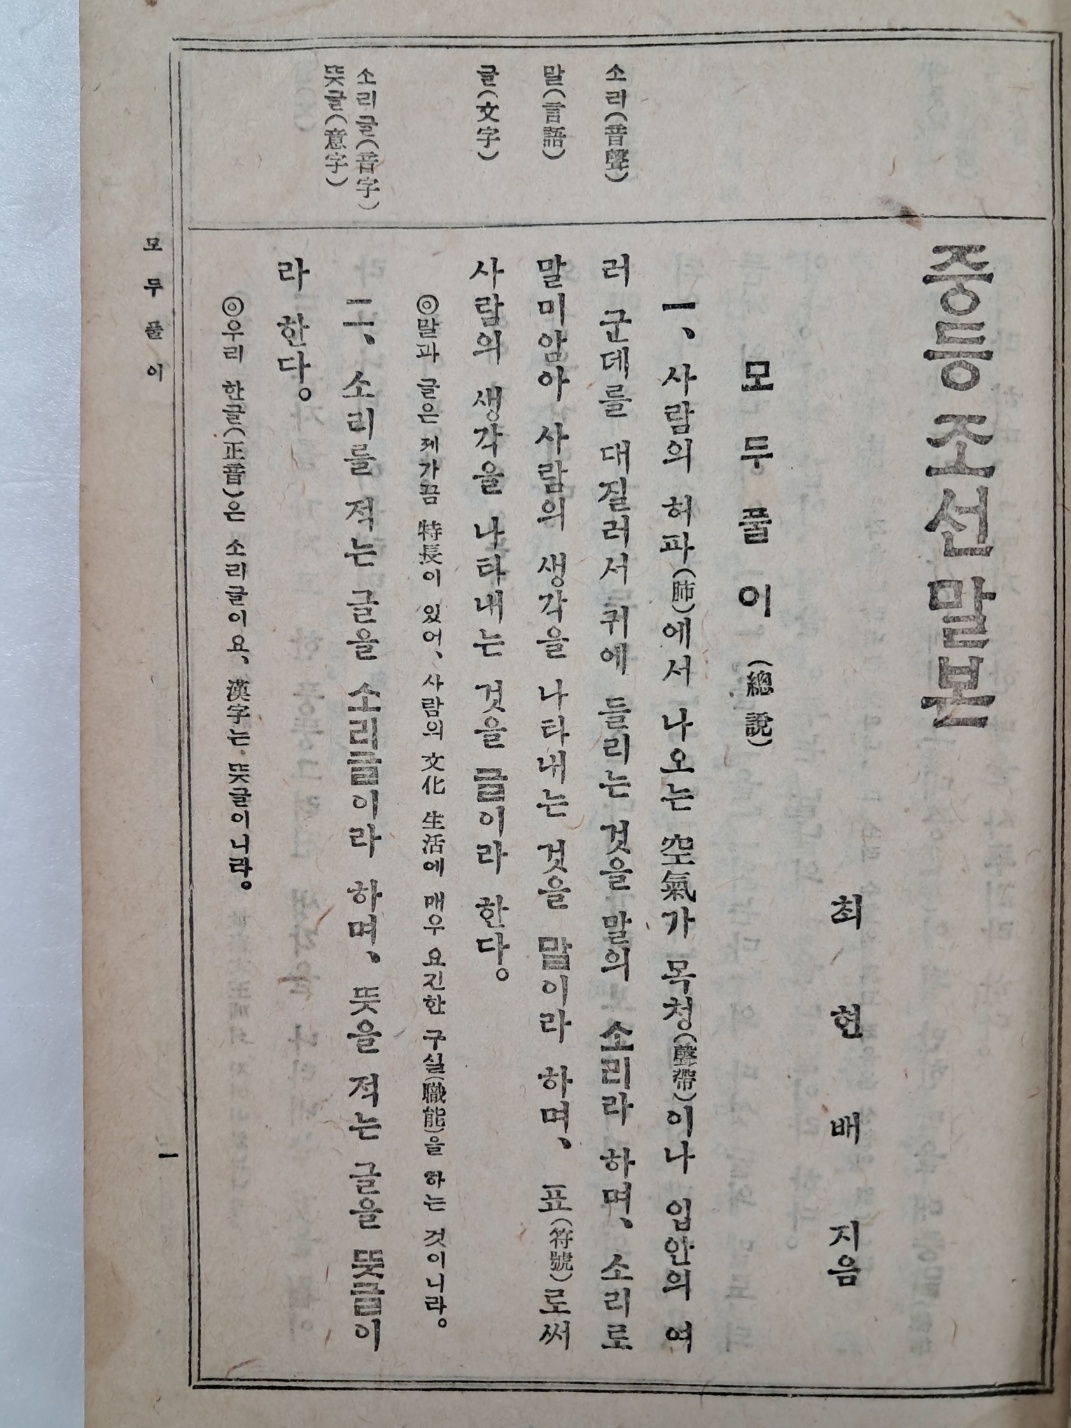 중등 조선 말본
최 현 배 지음
모 두 풀 이 (總 說)
소리(音聲)
말(言語)
글(文字)
소리글(音字)
뜻글(意字)
一、 사람의 허파(肺)에서 나오는 空氣가 목청(聲帶)이나 입안의 여
러 군데를 대질러서 귀에 들리는 것을 말의 소리라 하며、 소리로
말미암아 사람의 생각을 나타내는 것을 말이라 하며、 표(符號)로써
사람의 생각을 나타내는 것을 글이라 한다。
◎말과 글은 제가끔 特長이 있어、 사람의 文化 生活에 매우 요긴한 구실(職能)을 하는 것이니라。
二、 소리를 적는 글을 소리글이라 하며、 뜻을 적는 글을 뜻글이
라 한다。
◎우리 한글(正音)은 소리글이요、 漢字는 뜻글이니라。
모 두 풀 이
一